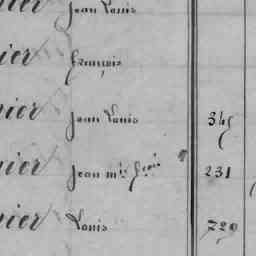 nier Jean Louis
nier François
nier Jean Louis 345
nier Jean m^ie 231
nier Louis 729